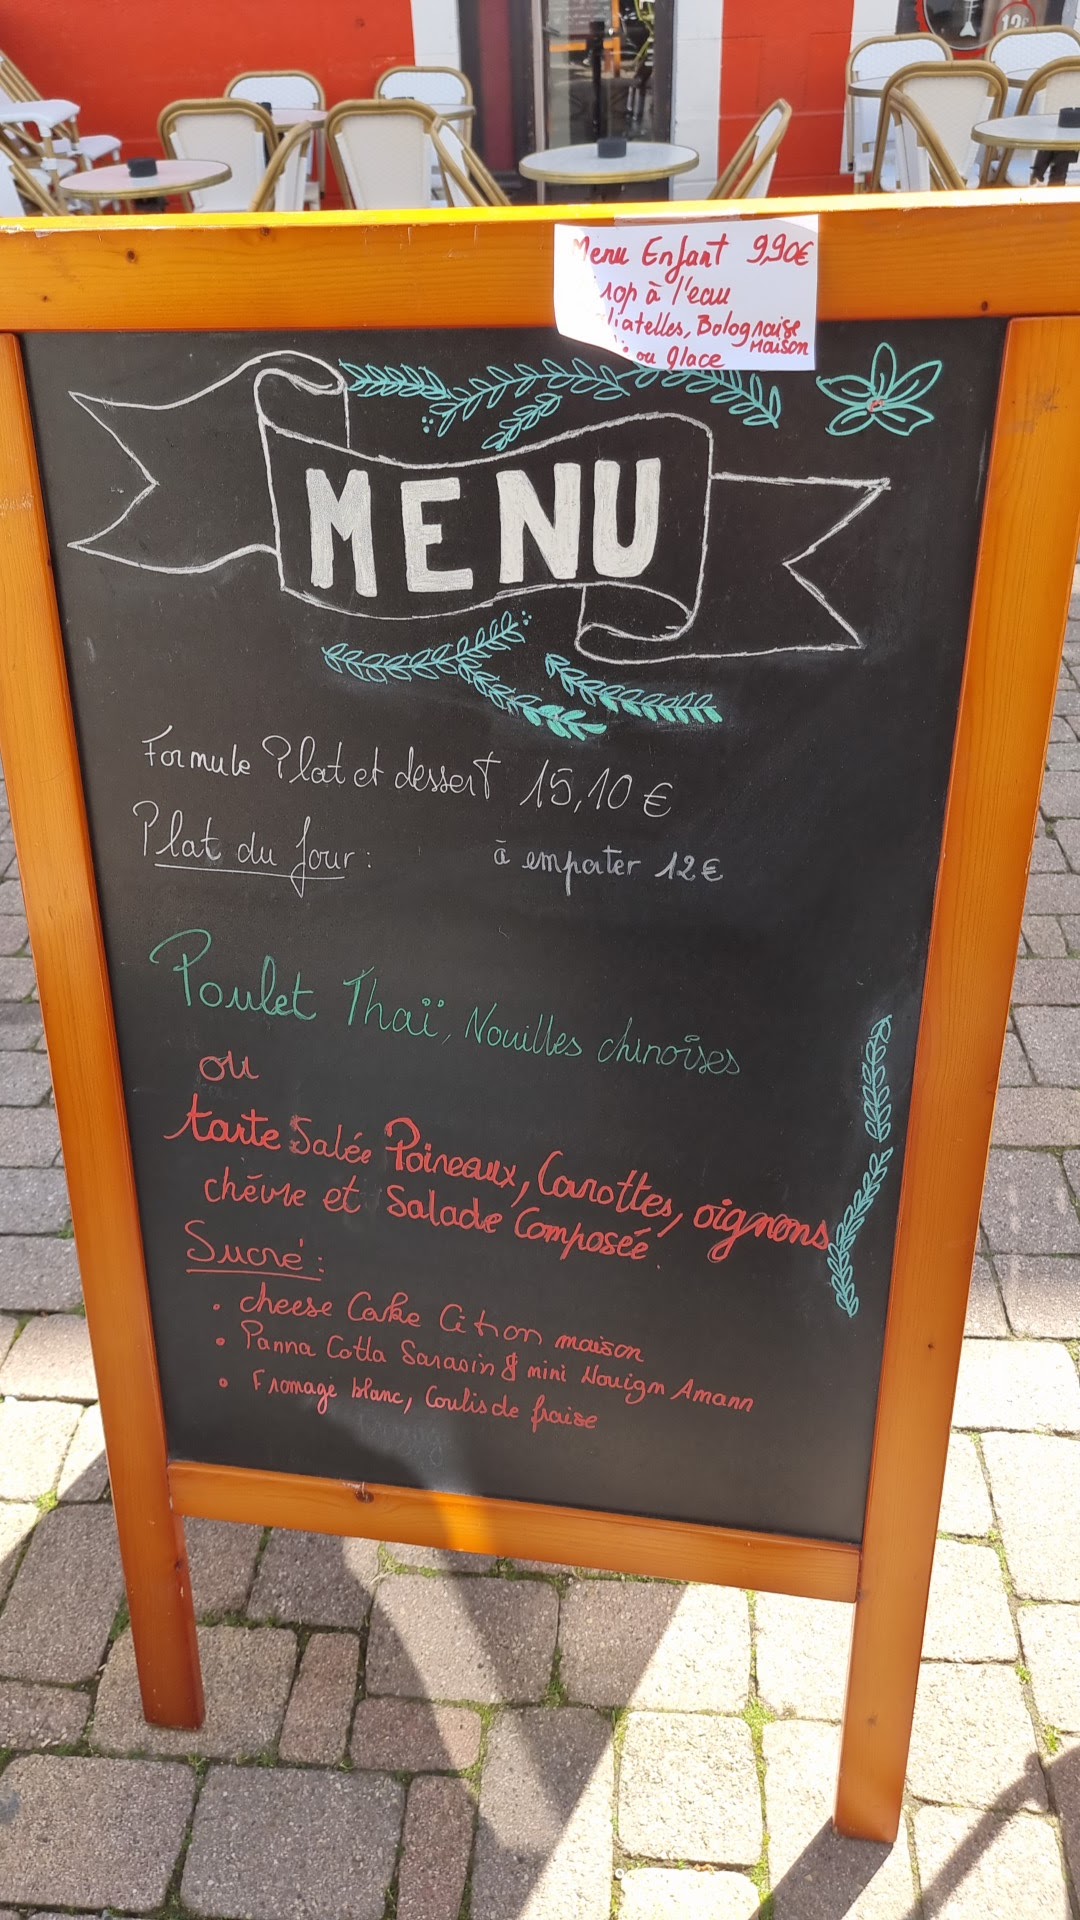 12€
Menu Enfant 9,90€
à l'eau
Bolognaise
Maison
ou glace
MENU
Formule Plat et dessert 15,10 €
Plat du Jour : à emporter 12€
Poulet Thaï, Nouilles chinoises
ou
tarte Salée Poireaux, Carottes, oignons
chévre et Salade Composée.
Sucré :
• cheese Cake Citron maison
• Panna Cotta Sarasin & mini Kouign Amann
• Fromage blanc, Coulis de fraise